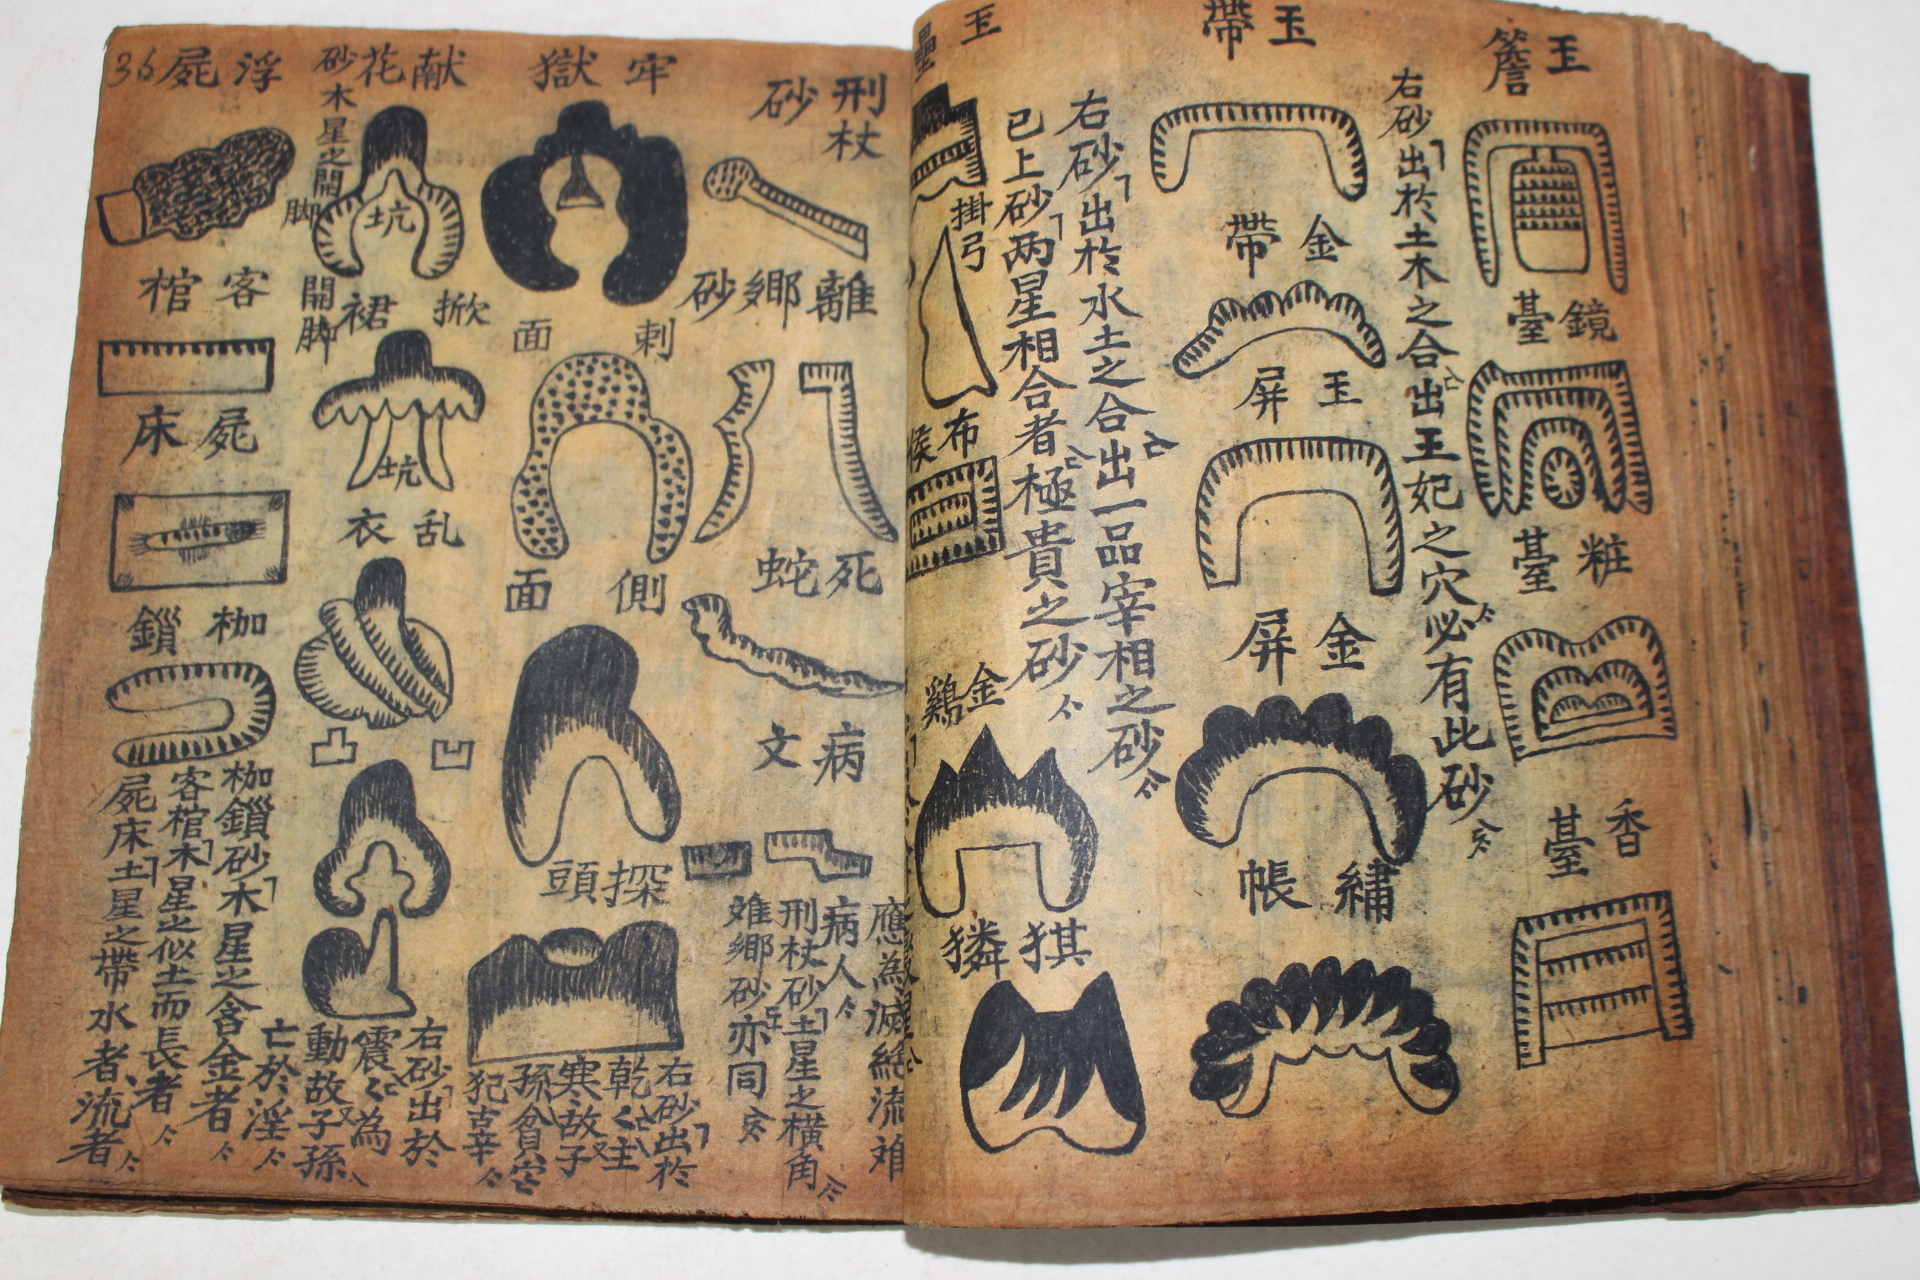 玉簷
右砂出於土木之合出王妃之穴必有此砂
鏡臺
粧臺
香臺
玉帶
金帶
玉屏
金屏
繡帳
右砂出於水土之合出一品宰相之砂
已上砂两星相合者極貴之砂
玉
掛弓
布
金鷄
猉獜
刑杖砂
離鄉砂
死蛇
病文
應為滅絕流难
病人
刑杖砂土星之橫角
难鄉砂亦同
牢獄
刺面
側面
探頭
右砂出於
乾乾主
寒故子
孫貧
犯吉辛
献花砂
木星之開脚
坑
掀裙
開脚
坑
乱衣
凹凸
右砂出於
震震為
動故子孫
亡於淫
浮屍
36
客棺
屍床
枷鎖
枷鎖砂木星之含金者
客棺木星之似土而長者
屍床土星之帶水者流者